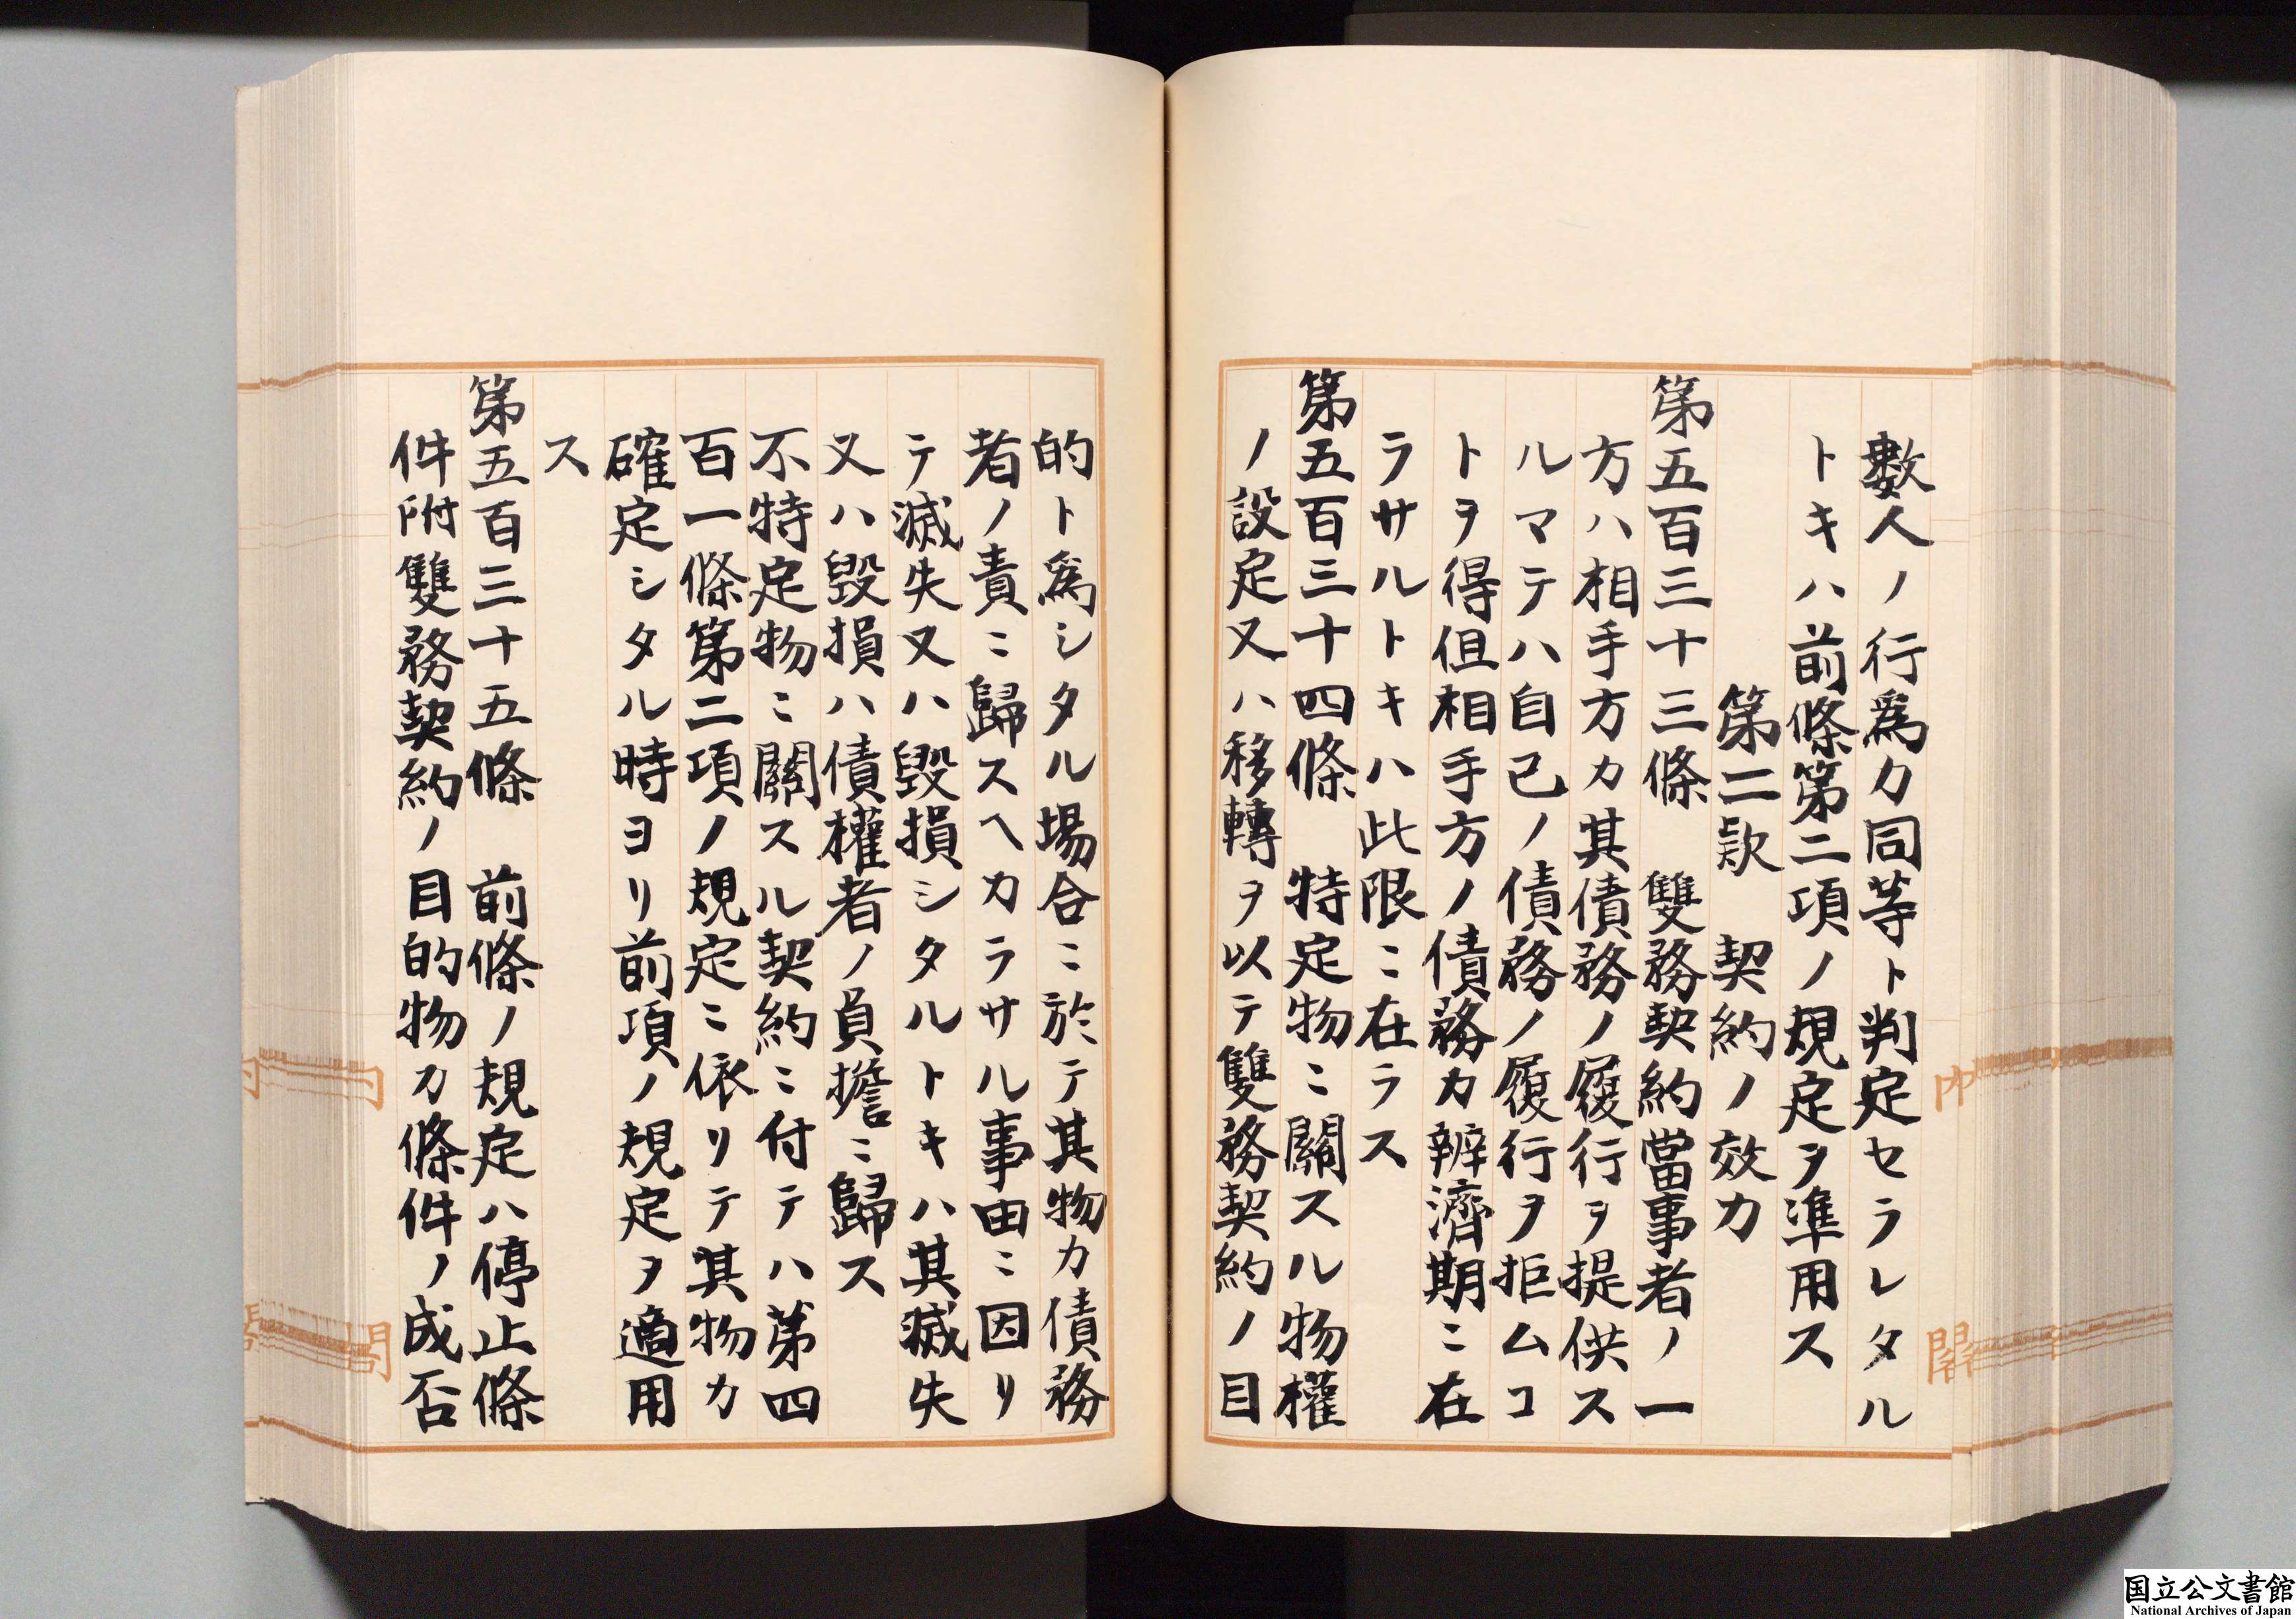 數人ノ行爲カ同等ト判定セラレタル
トキハ前條第二項ノ規定ヲ準用ス
第二款　契約ノ效力
第五百三十三條　雙務契約當事者ノ一
方ハ相手方カ其債務ノ履行ヲ提供ス
ルマテハ自己ノ債務ノ履行ヲ拒ムコ
トヲ得但相手方ノ債務カ辨濟期ニ在
ラサルトキハ此限ニ在ラス
第五百三十四條　特定物ニ關スル物權
ノ設定又ハ移轉ヲ以テ雙務契約ノ目
的ト爲シタル場合ニ於テ其物カ債務
者ノ責ニ歸スヘカラサル事由ニ因リ
テ滅失又ハ毀損シタルトキハ其滅失
又ハ毀損ハ債權者ノ負擔ニ歸ス
不特定物ニ關スル契約ニ付テハ第四
百一條第二項ノ規定ニ依リテ其物カ
確定シタル時ヨリ前項ノ規定ヲ適用
ス
第五百三十五條　前條ノ規定ハ停止條
件附雙務契約ノ目的物カ條件ノ成否
国立公文書館
National Archives of Japan